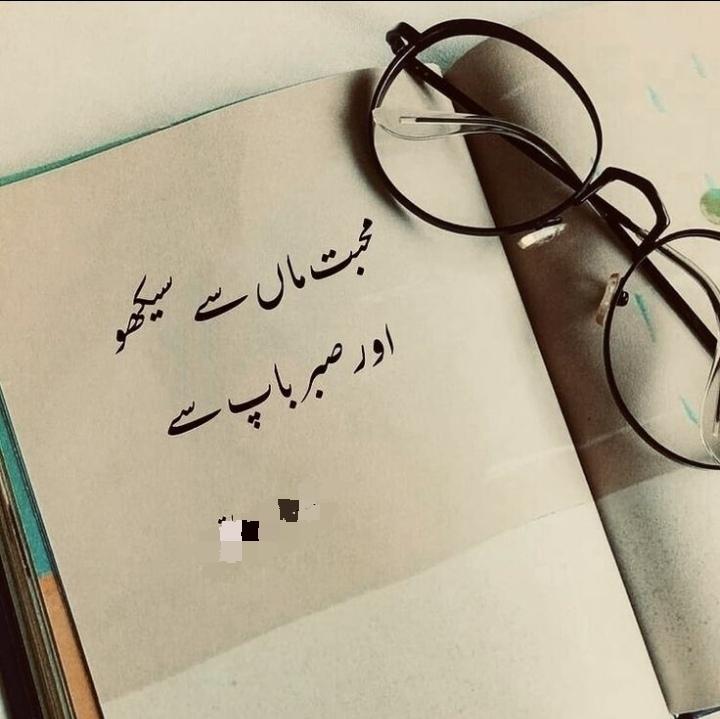 محبت ماں سے سیکھو
اور صبر باپ سے